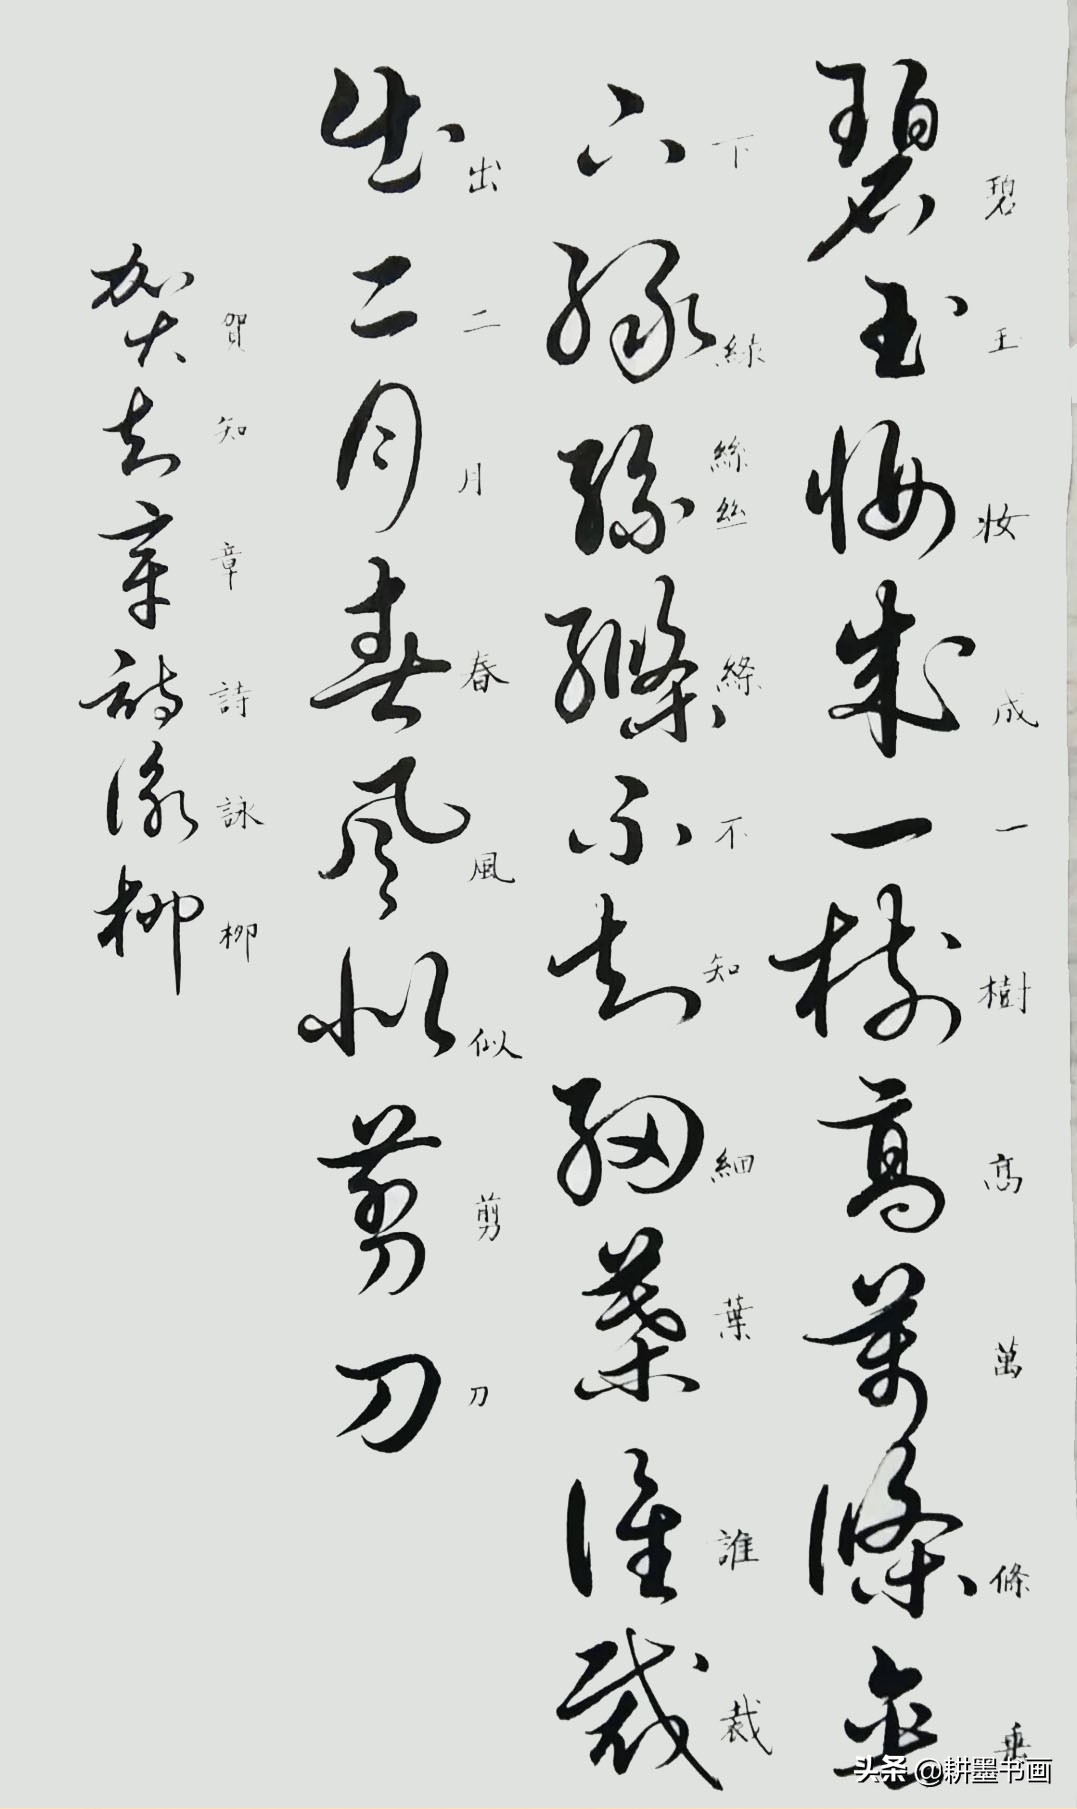 碧玉妝成一樹高萬條垂
碧玉妆成一樹高萬條垂
下綠絲絛不知細葉誰裁
下綠絲絲絛不知細葉誰裁
出二月春風似剪刀
出二月春風似剪刀
賀知章詩詠柳
賀知章詩詠柳
头条 @耕墨书画